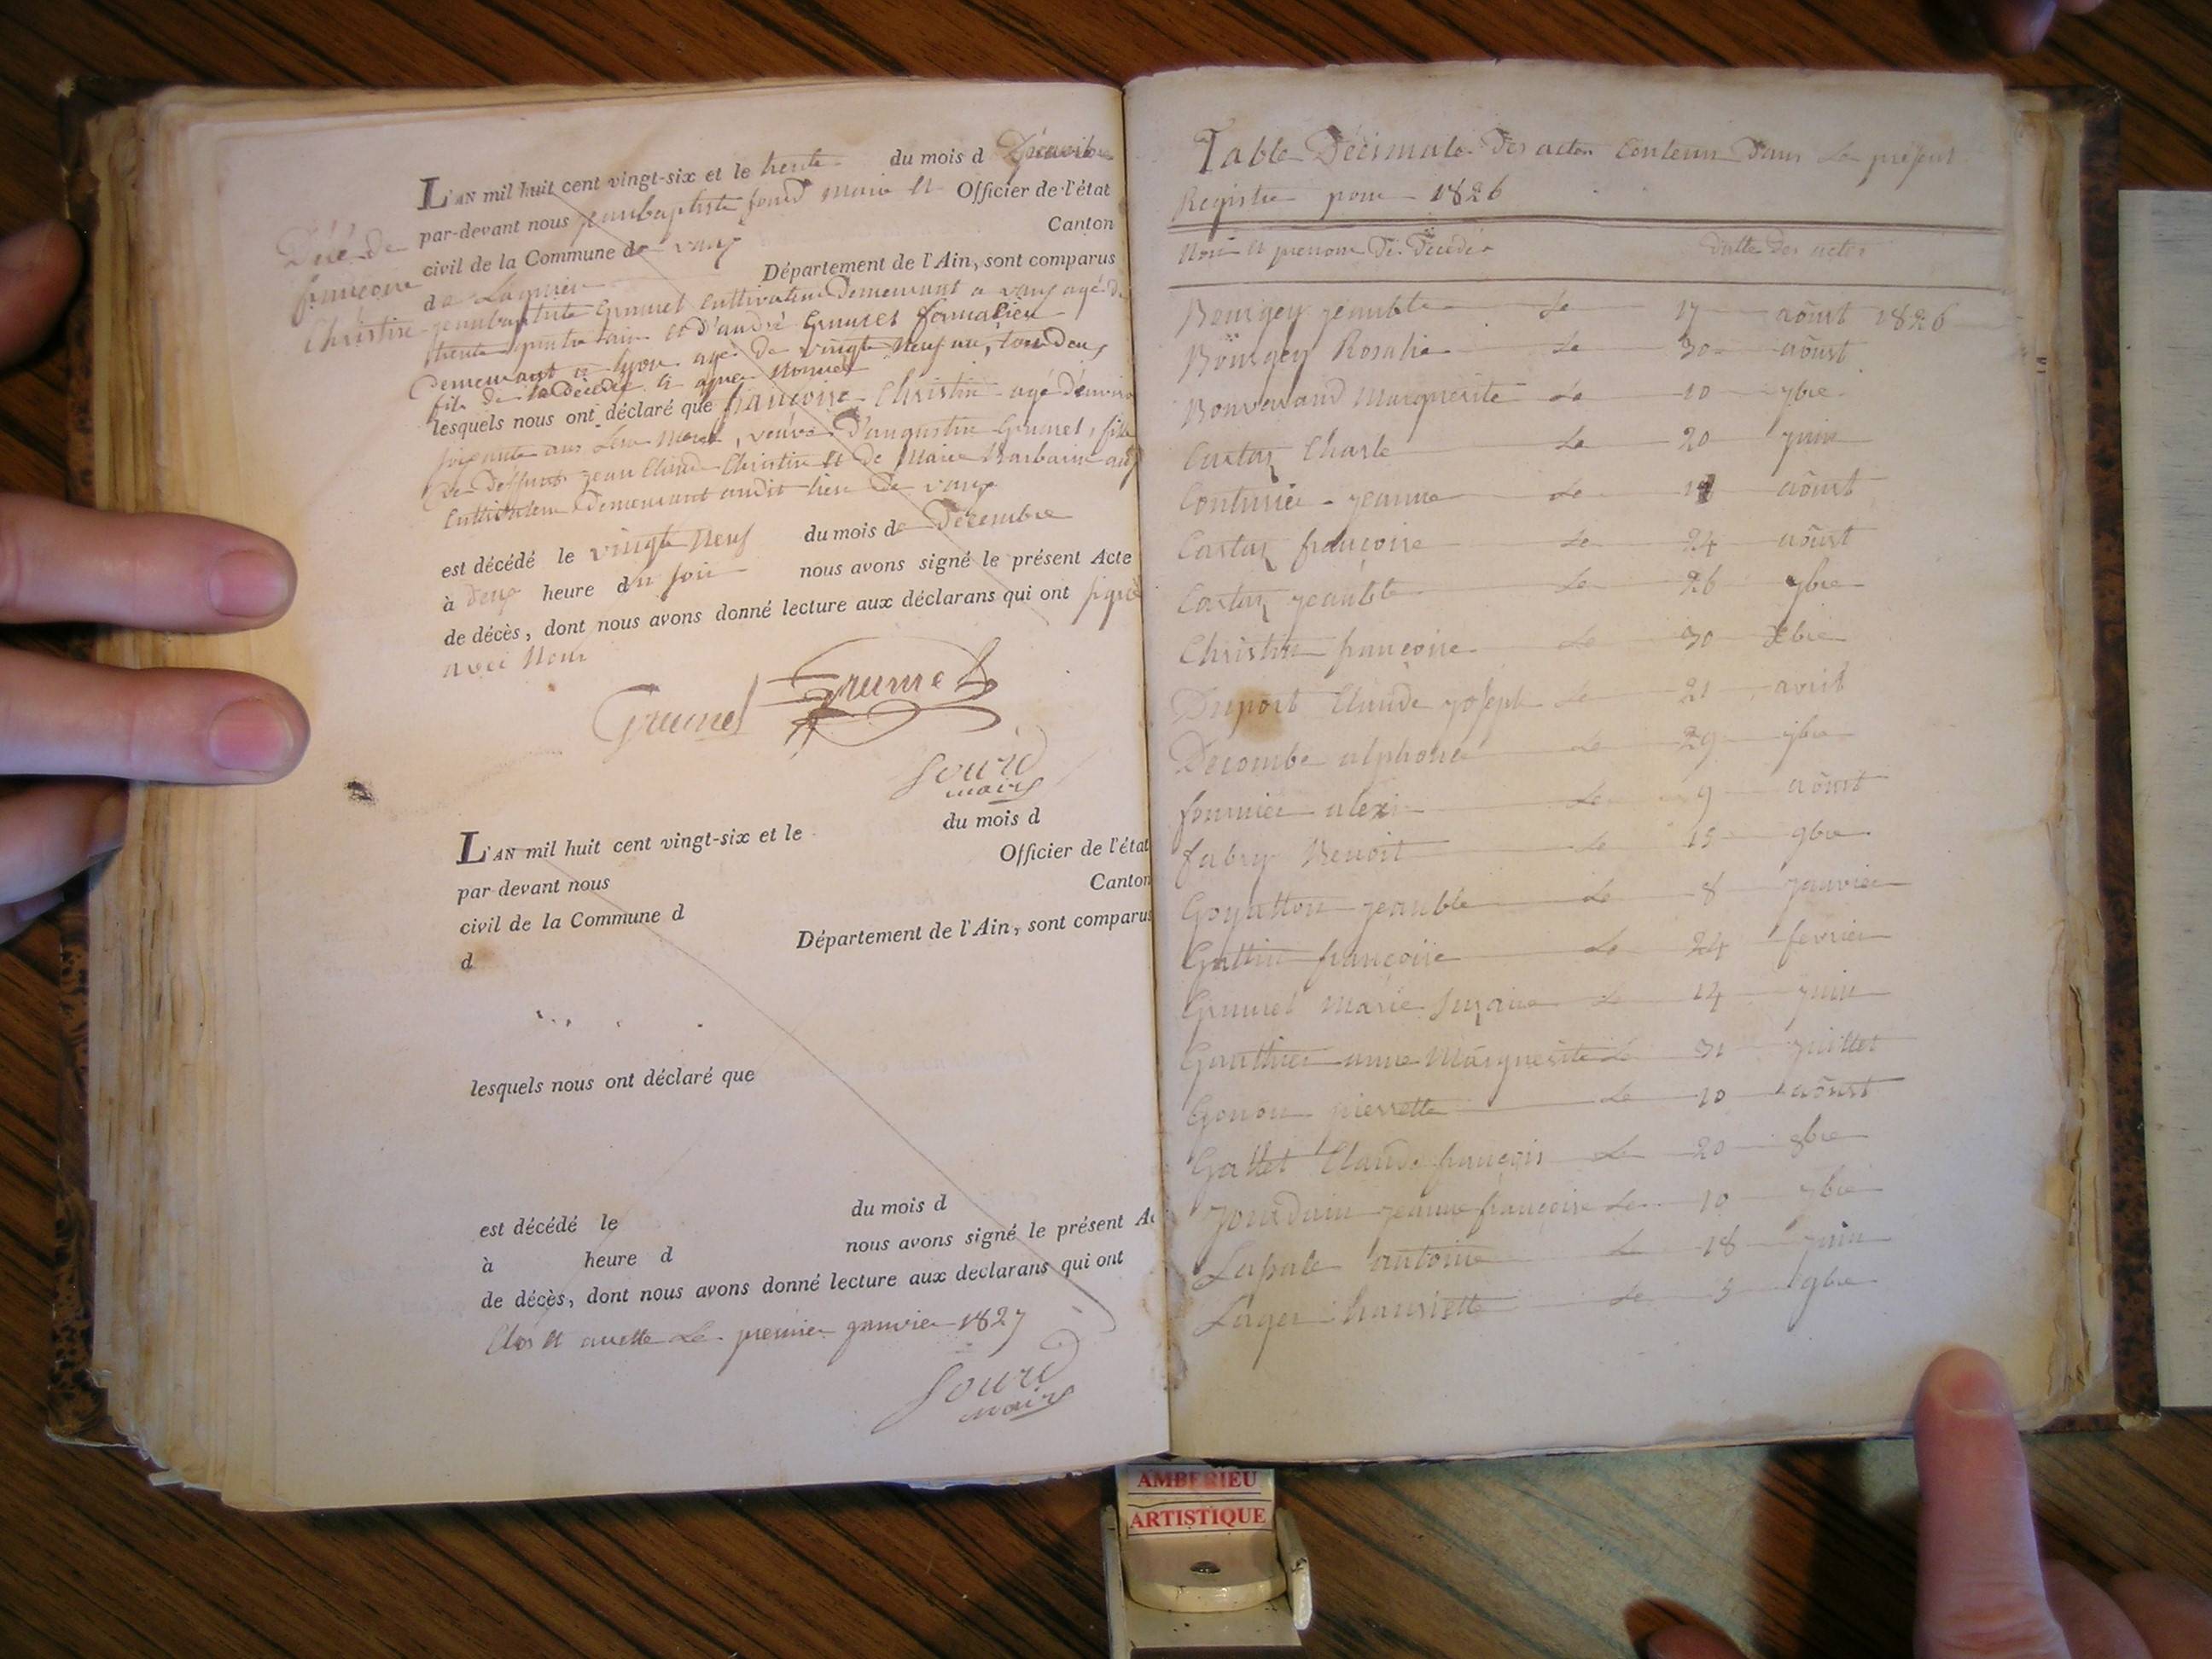 Décé de
françoise
Christin
L'AN mil huit cent vingt-six et le trente du mois d Décembre
par-devant nous jeanbaptiste sourd maire et Officier de l'état
civil de la Commune de vaux Canton
de Lagnieu Département de l'Ain, sont comparus
jeanbaptiste Grumel cultivateur demeurant a vaux agé de
trente quatre ans et d'andré Grumel
demeurant a lyon agé de vingt neuf ans, tous deux
fils de la décédé
lesquels nous ont déclaré que françoise Christin agé d'environ
soixante ans, veuve d'augustin Grumel, fille
de deffunts jean Claude Christin et de Marie Barbarin
cultivateur demeurant audit lieu de vaux
est décédé le vingt neuf du mois de Décembre
à deux heure du soir nous avons signé le présent Acte
de décès, dont nous avons donné lecture aux déclarans qui ont signé
avec nous
Grumel Grumel
Sourd
maire
L'AN mil huit cent vingt-six et le du mois d
par devant nous Officier de l'état
civil de la Commune d Canton
d Département de l'Ain, sont comparus
lesquels nous ont déclaré que
est décédé le du mois d
à heure d nous avons signé le présent Ac
de décès, dont nous avons donné lecture aux declarans qui ont
Clos et arretté Le premier janvier 1827
Sourd
maire
Table Décimale des actes Contenu dans Le présent
Registre pour 1826
Nom et prenom des décédés datte des actes
Bourgey jeanbte Le 17 aôust 1826
Bourgey Rosalie Le 30 aôust
Bonvarand Marguerite Le 10 7bre
Castaz Charle Le 20 juin
Couturier jeanne Le aôust
Castaz françoise Le 24 aôust
Castaz jeanbte Le 26 7bre
Christin françoise Le 30 Xbre
Duport Claude joseph Le 21 avril
Decombe alphonse Le 29 7bre
fournier alexi Le 9 aôust
fabry Benoit Le 15 9bre
Goyatton jeanbte Le 8 janvier
Gattin françoise Le 24 fevrier
Grumel Marie Suzanne Le 14 juin
Gauthier anne Marguerite Le 31 juillet
Gonon pierrette Le 10 aôust
Gallet Claude françois Le 20 8bre
Jourdain jeanne françoise Le 10 7bre
Lapale antoine Le 18 juin
Lager hanriette Le 5 9bre
AMBERIEU
ARTISTIQUE